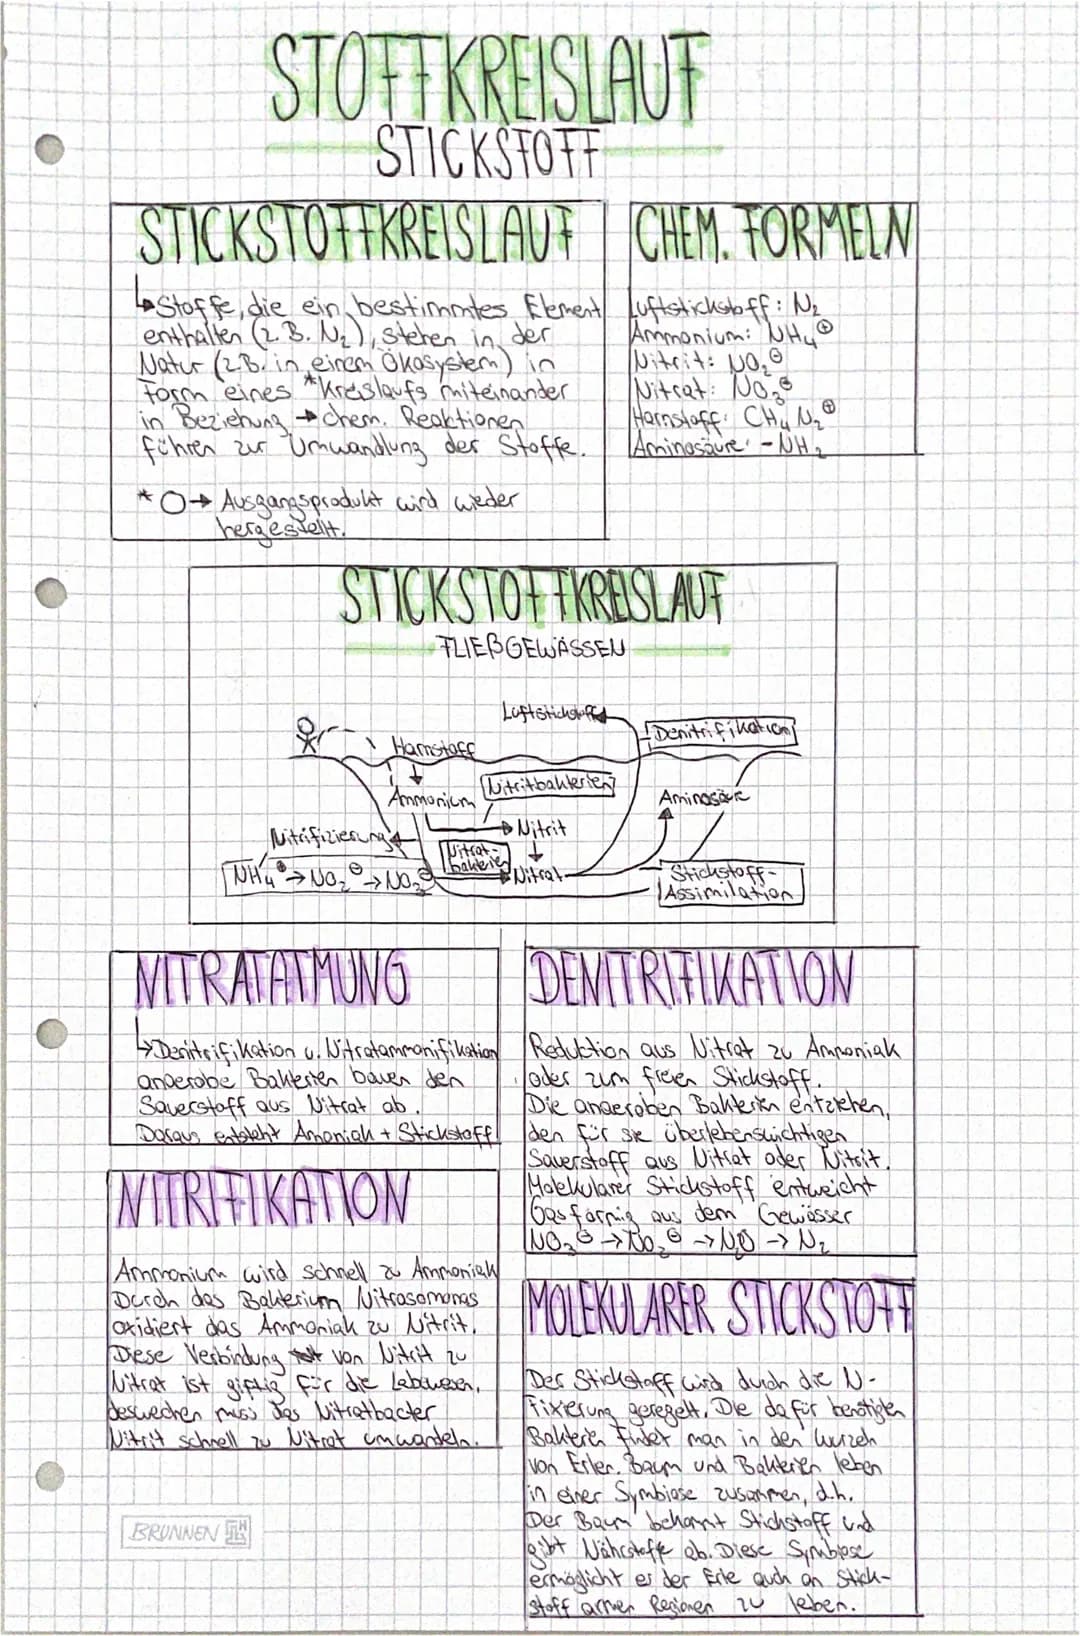 STOFFKREISLAUF
STICKSTOFF
STICKSTOFFKREISLAUF
↳Stoffe, die ein bestimmtes Element
enthalten (z.B. N₂), stehen in der
Natur (z.B. in einem Ökosystem) in
Form eines *Kreislaufs miteinander
in Beziehung → chem. Reaktionen
führen zur Umwandlung der Stoffe.
* ○→ Ausgangsprodukt wird wieder
hergestellt.
CHEM. FORMELN
Luftstickstoff: N₂
Ammonium: NH₄⊕
Nitrit: NO₂⊖
Nitrat: NO₃⊖
Harnstoff: CH₄N₂⊕
Aminosäure: -NH₂
STICKSTOFFKREISLAUF
FLIEßGEWÄSSEN
Luftstickstoff
Denitrifikation
Harnstoff
Nitritbakterien
Ammonium
Aminosäure
Nitrit
Nitrifizierung
Nitrat-
bakterien
NH₄⊕→NO₂⊖→NO₃⊖
Nitrat
Stickstoff-
Assimilation
NITRATATMUNG
↳Denitrifikation u. Nitratammonifikation
anaerobe Bakterien bauen den
Sauerstoff aus Nitrat ab.
Daraus entsteht Amoniak + Stickstoff
NITRIFIKATION
Ammonium wird schnell zu Ammoniak
Durch das Bakterium Nitrosomonas
oxidiert das Ammoniak zu Nitrit.
Diese Verbindung von Nitrit zu
Nitrat ist giftig für die Lebewesen,
deswechen muss das Nitratbacter
Nitrit schnell zu Nitrat umwandeln.
DENITRIFIKATION
Reduktion aus Nitrat zu Ammoniak
oder zum freien Stickstoff.
Die anaeroben Bakterien entziehen,
den für sie überlebenswichtigen
Sauerstoff aus Nitrat oder Nitrit.
Molekularer Stickstoff entweicht
Gasförmig aus dem Gewässer
NO₃⊖→NO₂⊖→N₂O→N₂
MOLEKULARER STICKSTOFF
Der Stickstoff wird durch die N-
Fixierung geregelt. Die dafür benötigten
Bakterien findet man in den Wurzeln
von Erlen. Baum und Bakterien leben
in einer Symbiose zusammen, d.h.
Der Baum bekommt Stickstoff und
gibt Nährstoffe ab. Diese Symbiose
ermöglicht es der Erle auch an Stick-
stoff armen Regionen zu leben.
BRUNNEN